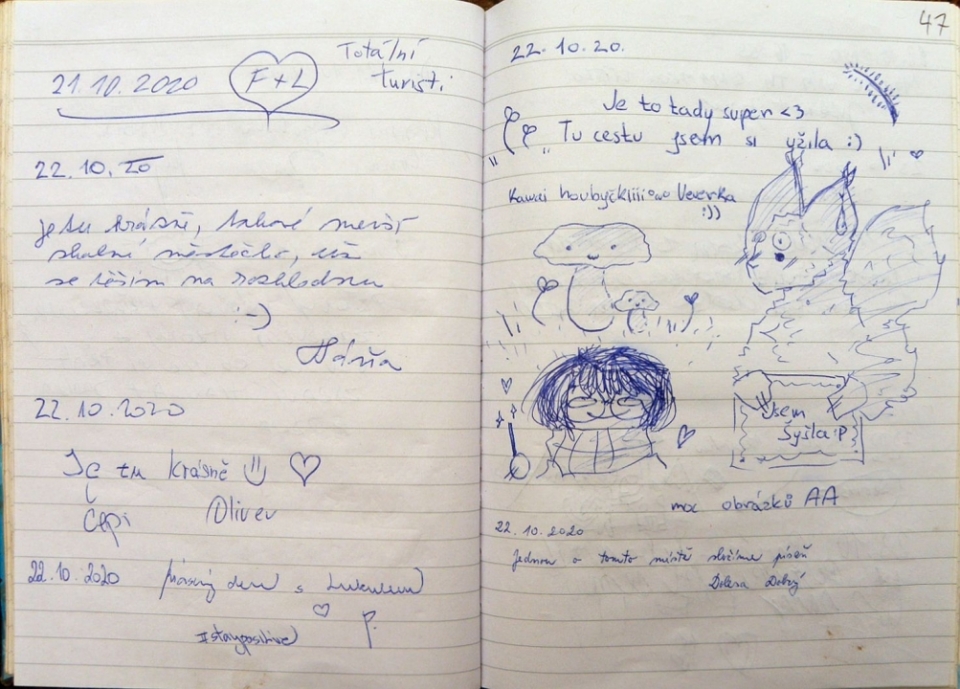 21.10.2020 F+L Totální
turisti
22.10.20
je tu krásně, takové menší
skalní městečko, už
se těším na rozhlednu
:-)
Háňa
22.10.2020
Je tu krásně
Cepi Oliver
22.10.2020 krásný den s
P.
#staypositive
47
22.10.20.
Je to tady super <3
Tu cestu jsem si užila :)
Kawai houbyčkiiii owo Veverka
:))
Jsem
Šyšla :P
moc obrázků AA
22.10.2020
Jednou o tomto městě složíme píseň